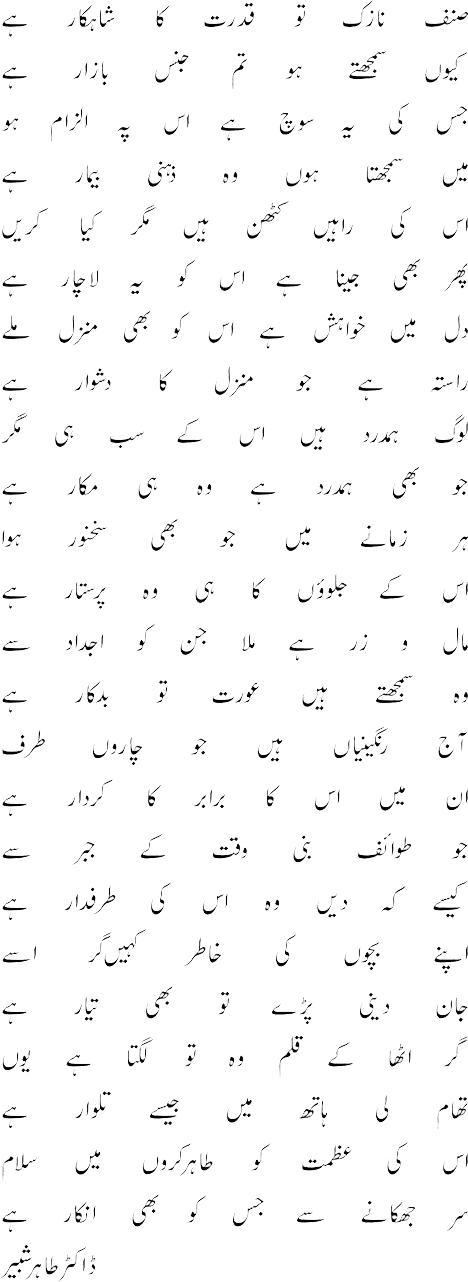 صنف نازک تو قدرت کا شاہکار ہے
کیوں سمجھتے ہو تم جنس بازار ہے
جس کی یہ سوچ ہے اس پہ الزام ہو
میں سمجھتا ہوں وہ ذہنی بیمار ہے
اس کی راہیں کٹھن ہیں مگر کیا کریں
پھر بھی جینا ہے اس کو یہ لاچار ہے
دل میں خواہش ہے اس کو بھی منزل ملے
راستہ ہے جو منزل کا دشوار ہے
لوگ ہمدرد ہیں اس کے سب ہی مگر
جو بھی ہمدرد ہے وہ ہی مکار ہے
ہر زمانے میں جو بھی سخنور ہوا
اس کے جلوؤں کا ہی وہ پرستار ہے
مال و زر ہے ملا جن کو اجداد سے
وہ سمجھتے ہیں عورت تو بدکار ہے
آج رنگینیاں ہیں جو چاروں طرف
ان میں اس کا برابر کا کردار ہے
جو طوائف بنی وقت کے جبر سے
کیسے کہ دیں وہ اس کی طرفدار ہے
اپنے بچوں کی خاطر کہیں گر اسے
جان دینی پڑے تو بھی تیار ہے
گر اٹھا کے قلم وہ تو لگتا ہے یوں
تھام لی ہاتھ میں جیسے تلوار ہے
اس کی عظمت کو طاہر کروں میں سلام
سر جھکانے سے جس کو بھی انکار ہے
ڈاکٹر طاہر شبیر